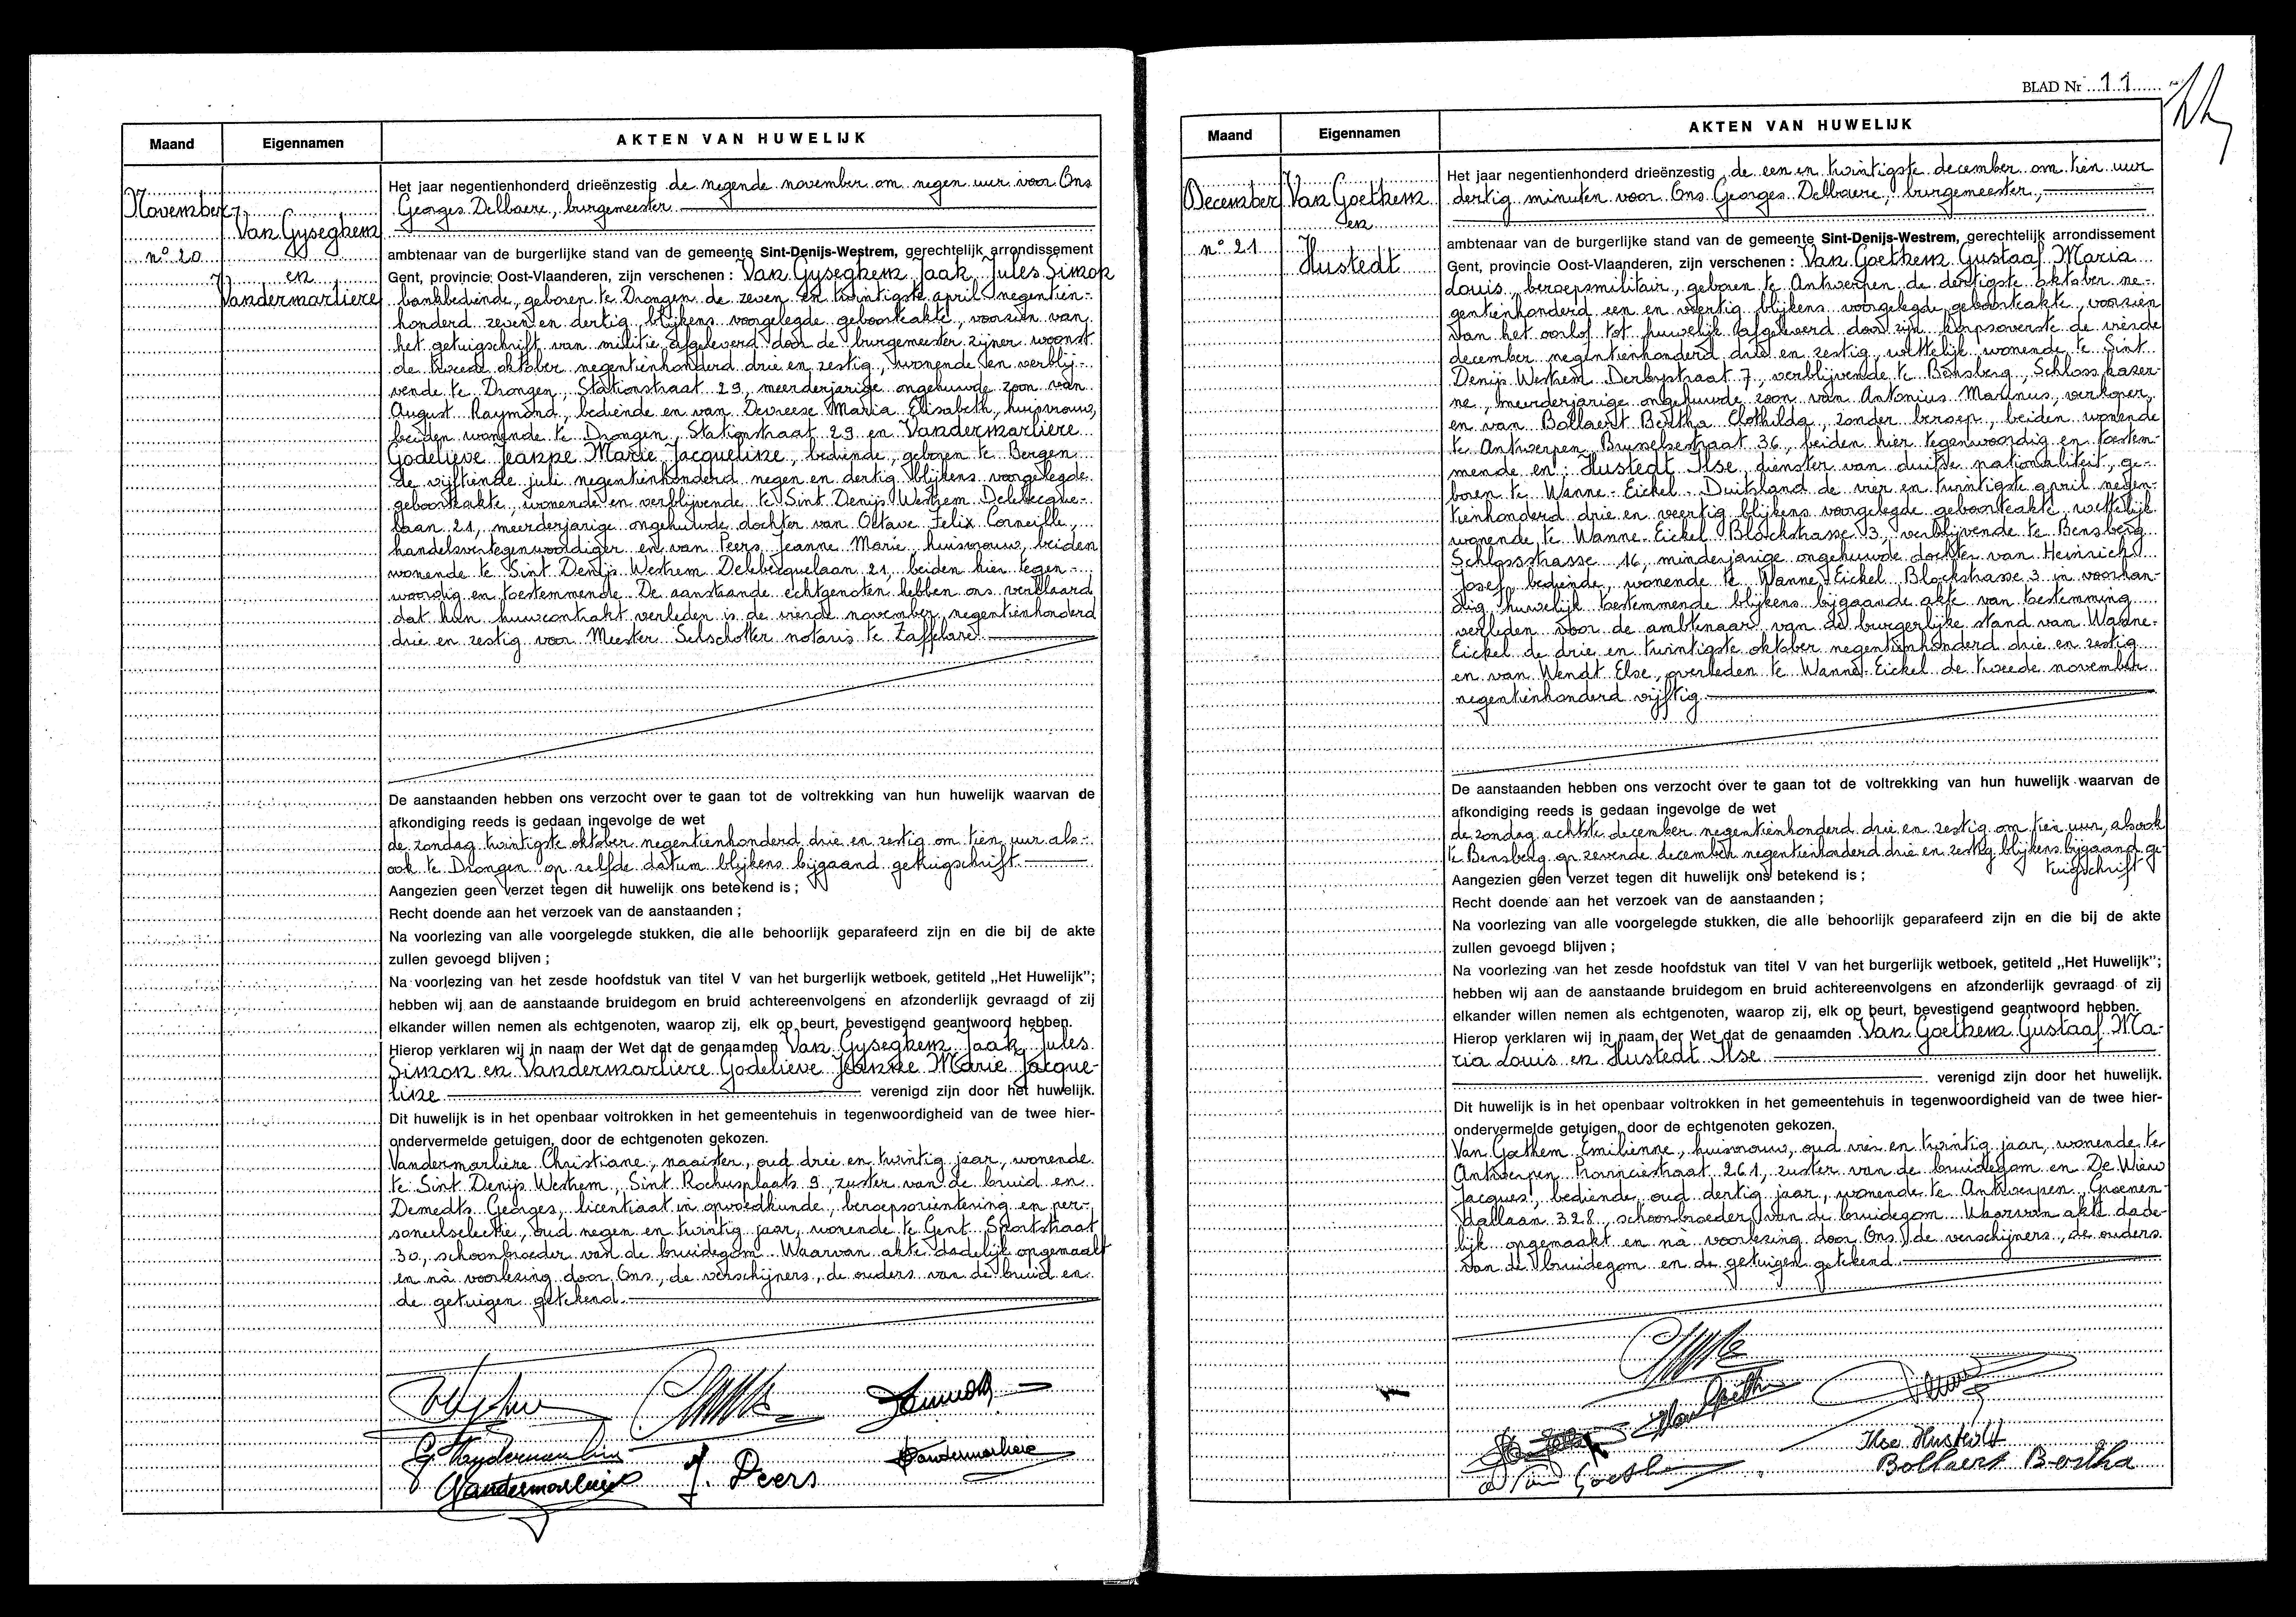 Maand
Eigennamen
AKTEN VAN HUWELIJK
November
n° 20
Van Gyseghem
en
Vandermarliere
Het jaar negentienhonderd drieënzestig de negende november om negen uur voor Ons
Georges Delbaere, burgemeester
ambtenaar van de burgerlijke stand van de gemeente Sint-Denijs-Westrem, gerechtelijk arrondissement
Gent, provincie Oost-Vlaanderen, zijn verschenen : Van Gyseghem Jaak Jules Simon
bankbediende, geboren te Drongen de zeven en twintigste april negentien-
honderd zeven en dertig blijkens voorgelegde geboorteakte, voorzien van
het getuigschrift van militie afgeleverd door de burgemeester zijner woonst
de tweede oktober negentienhonderd drie en zestig, wonende en verblij-
vende te Drongen, Stationstraat 29, meerderjarige ongehuwde zoon van
August Raymond, bediende en van Devreese Maria Elisabeth, huisvrouw,
beiden wonende te Drongen, Stationstraat 29 en Vandermarliere
Godelieve Jeanne Marie Jacqueline, bediende, geboren te Bergen
de vijftiende juli negentienhonderd negen en dertig blijkens voorgelegde
geboorteakte, wonende en verblijvende te Sint Denijs Westrem Delebecque-
laan 21, meerderjarige ongehuwde dochter van Octave Felix Corneille,
handelsvertegenwoordiger en van Peers Jeanne Marie huisvrouw, beiden
wonende te Sint Denijs Westrem Delebecquelaan 21, beiden hier tegen-
woordig en toestemmende. De aanstaande echtgenoten hebben ons verklaard
dat hun huwcontrakt verleden is de vierde november negentienhonderd
drie en zestig voor Meester Selschotter notaris te Zaffelare.
De aanstaanden hebben ons verzocht over te gaan tot de voltrekking van hun huwelijk waarvan de
afkondiging reeds is gedaan ingevolge de wet
de zondag twintigste oktober negentienhonderd drie en zestig om tien uur als-
ook te Drongen op zelfde datum blijkens bijgaand getuigschrift.
Aangezien geen verzet tegen dit huwelijk ons betekend is ;
Recht doende aan het verzoek van de aanstaanden ;
Na voorlezing van alle voorgelegde stukken, die alle behoorlijk geparafeerd zijn en die bij de akte
zullen gevoegd blijven ;
Na voorlezing van het zesde hoofdstuk van titel V van het burgerlijk wetboek, getiteld „Het Huwelijk";
hebben wij aan de aanstaande bruidegom en bruid achtereenvolgens en afzonderlijk gevraagd of zij
elkander willen nemen als echtgenoten, waarop zij, elk op beurt, bevestigend geantwoord hebben.
Hierop verklaren wij in naam der Wet dat de genaamden Van Gyseghem Jaak Jules
Simon en Vandermarliere Godelieve Jeanne Marie Jacque-
line verenigd zijn door het huwelijk.
Dit huwelijk is in het openbaar voltrokken in het gemeentehuis in tegenwoordigheid van de twee hier-
ondervermelde getuigen, door de echtgenoten gekozen.
Vandermarliere Christiane, naaister, oud drie en twintig jaar, wonende
te Sint Denijs Westrem, Sint Rochusplaats 9, zuster van de bruid en
Demedts Georges, licentiaat in opvoedkunde, beroepsoriëntering en per-
soneelselectie, oud negen en twintig jaar, wonende te Gent Sportstraat
30, schoonbroeder van de bruidegom. Waarvan akte dadelijk opgemaakt
en nà voorlezing door Ons, de verschijners, de ouders van de bruid en
de getuigen getekend.
G Vandermarliere
Vandermarliere
J. Peers
Vandermarliere
BLAD Nr 11
Maand
Eigennamen
AKTEN VAN HUWELIJK
December
n° 21
Van Goethem
en
Hustedt
Het jaar negentienhonderd drieënzestig de een en twintigste december om tien uur
dertig minuten voor Ons Georges Delbaere, burgemeester,
ambtenaar van de burgerlijke stand van de gemeente Sint-Denijs-Westrem, gerechtelijk arrondissement
Gent, provincie Oost-Vlaanderen, zijn verschenen : Van Goethem Gustaaf Maria
Louis, beroepsmilitair, geboren te Antwerpen de dertigste oktober ne-
gentienhonderd een en veertig blijkens voorgelegde geboorteakte, voorzien
van het oorlof tot huwelijk afgeleverd door zijn korpsoverste de vierde
december negentienhonderd drie en zestig, wettelijk wonende te Sint
Denijs Westrem Derbystraat 7, verblijvende te Bensberg, Schloss kazer-
ne, meerderjarige ongehuwde zoon van Antonius Marinus, verkoper,
en van Bollaert Bertha Clothilda, zonder beroep, beiden wonende
te Antwerpen Brusselsestraat 36, beiden hier tegenwoordig en toestem-
mende en: Hustedt Ilse, dienster van duitse nationaliteit, ge-
boren te Wanne-Eickel Duitsland de vier en twintigste april negen-
tienhonderd drie en veertig blijkens voorgelegde geboorteakte, wettelijk
wonende te Wanne-Eickel Blockstrasse 3, verblijvende te Bensberg
Schlossstrasse 16, minderjarige ongehuwde dochter van Heinrich
Josef, bediende, wonende te Wanne-Eickel Blockstrasse 3 in voorhan-
dig huwelijk toestemmende blijkens bijgaande akte van toestemming
verleden voor de ambtenaar van de burgerlijke stand van Wanne-
Eickel de drie en twintigste oktober negentienhonderd drie en zestig
en van Wendt Else, overleden te Wanne-Eickel de tweede november
negentienhonderd vijftig.
De aanstaanden hebben ons verzocht over te gaan tot de voltrekking van hun huwelijk waarvan de
afkondiging reeds is gedaan ingevolge de wet
de zondag achtste december negentienhonderd drie en zestig om tien uur, alsook
te Bensberg op zevende december negentienhonderd drie en zestig blijkens bijgaand ge-
tuigschrift
Aangezien geen verzet tegen dit huwelijk ons betekend is ;
Recht doende aan het verzoek van de aanstaanden ;
Na voorlezing van alle voorgelegde stukken, die alle behoorlijk geparafeerd zijn en die bij de akte
zullen gevoegd blijven ;
Na voorlezing van het zesde hoofdstuk van titel V van het burgerlijk wetboek, getiteld „Het Huwelijk";
hebben wij aan de aanstaande bruidegom en bruid achtereenvolgens en afzonderlijk gevraagd of zij
elkander willen nemen als echtgenoten, waarop zij, elk op beurt, bevestigend geantwoord hebben.
Hierop verklaren wij in naam der Wet dat de genaamden Van Goethem Gustaaf Ma-
ria Louis en Hustedt Ilse
verenigd zijn door het huwelijk.
Dit huwelijk is in het openbaar voltrokken in het gemeentehuis in tegenwoordigheid van de twee hier-
ondervermelde getuigen, door de echtgenoten gekozen.
Van Goethem Emilienne, huisvrouw, oud vier en twintig jaar, wonende te
Antwerpen Provinciestraat 261, zuster van de bruidegom en De Wiew
Jacques, bediende, oud dertig jaar, wonende te Antwerpen, Groenen-
dallaan 328, schoonbroeder van de bruidegom. Waarvan akte dade-
lijk opgemaakt en na voorlezing door Ons, de verschijners, de ouders
van de bruidegom en de getuigen getekend.
Van Goethem
Ilse Hustedt
Bollaert Bertha